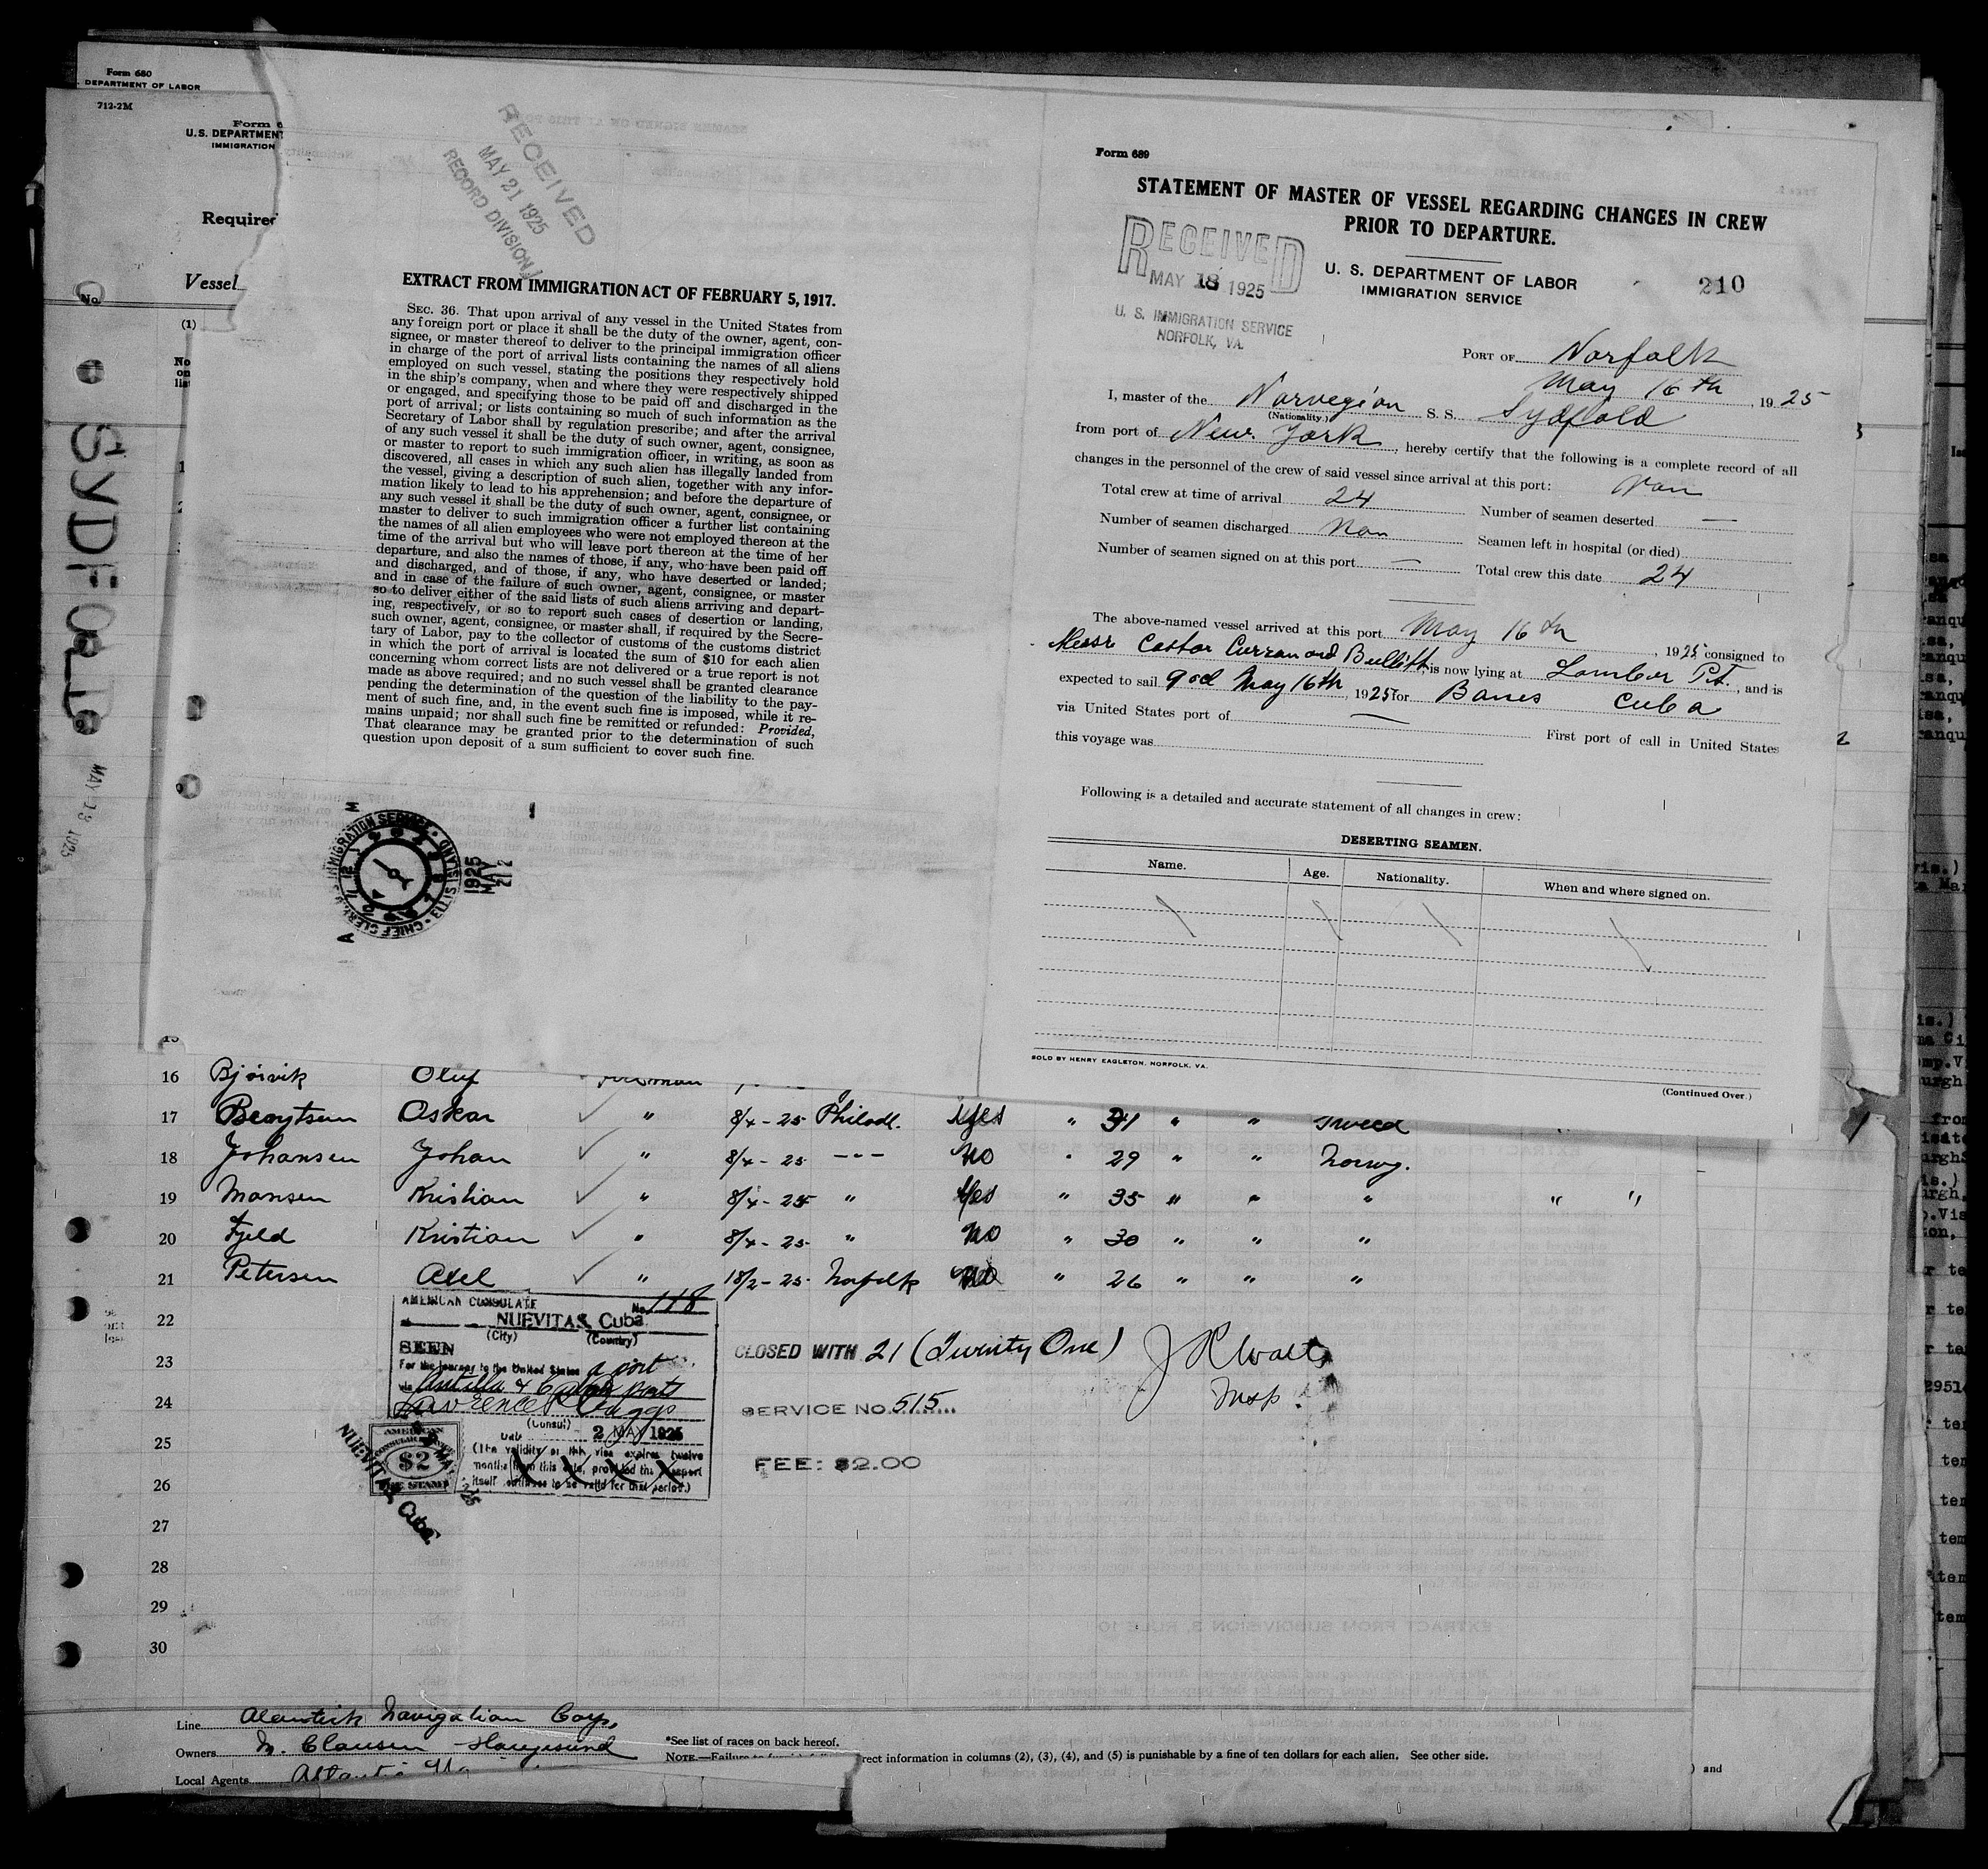 Form 680
DEPARTMENT OF LABOR
712-2M
U.S. DEPARTMENT
IMMIGRATION
Required
Vessel
No.
(1)
SYDFOLD
MAY 18 1925
RECEIVED
MAY 21 1925
RECORD DIVISION
EXTRACT FROM IMMIGRATION ACT OF FEBRUARY 5, 1917.
SEC. 36. That upon arrival of any vessel in the United States from
any foreign port or place it shall be the duty of the owner, agent, con-
signee, or master thereof to deliver to the principal immigration officer
in charge of the port of arrival lists containing the names of all aliens
employed on such vessel, stating the positions they respectively hold
in the ship's company, when and where they were respectively shipped
or engaged, and specifying those to be paid off and discharged in the
port of arrival; or lists containing so much of such information as the
Secretary of Labor shall by regulation prescribe; and after the arrival
of any such vessel it shall be the duty of such owner, agent, consignee,
or master to report to such immigration officer, in writing, as soon as
discovered, all cases in which any such alien has illegally landed from
the vessel, giving a description of such alien, together with any infor-
mation likely to lead to his apprehension; and before the departure of
any such vessel it shall be the duty of such owner, agent, consignee, or
master to deliver to such immigration officer a further list containing
the names of all alien employees who were not employed thereon at the
time of the arrival but who will leave port thereon at the time of her
departure, and also the names of those, if any, who have been paid off
and discharged, and of those, if any, who have deserted or landed;
and in case of the failure of such owner, agent, consignee, or master
so to deliver either of the said lists of such aliens arriving and depart-
ing, respectively, or so to report such cases of desertion or landing,
such owner, agent, consignee, or master shall, if required by the Secre-
tary of Labor, pay to the collector of customs of the customs district
in which the port of arrival is located the sum of $10 for each alien
concerning whom correct lists are not delivered or a true report is not
made as above required; and no such vessel shall be granted clearance
pending the determination of the question of the liability to the pay-
ment of such fine, and, in the event such fine is imposed, while it re-
mains unpaid; nor shall such fine be remitted or refunded: Provided,
That clearance may be granted prior to the determination of such
question upon deposit of a sum sufficient to cover such fine.
IMMIGRATION SERVICE ELLIS ISLAND CHIEF CLERK
1925 MAY 21
Form 689
STATEMENT OF MASTER OF VESSEL REGARDING CHANGES IN CREW
PRIOR TO DEPARTURE.
U. S. DEPARTMENT OF LABOR
IMMIGRATION SERVICE
210
RECEIVED
MAY 18 1925
U. S. IMMIGRATION SERVICE
NORFOLK, VA.
PORT OF Norfolk
May 16th, 1925
I, master of the Norvegian S. S. Sydfold
(Nationality.)
from port of New York, hereby certify that the following is a complete record of all
changes in the personnel of the crew of said vessel since arrival at this port: Non
Total crew at time of arrival 24 Number of seamen deserted —
Number of seamen discharged Non Seamen left in hospital (or died)
Number of seamen signed on at this port — Total crew this date 24
The above-named vessel arrived at this port May 16th, 1925 consigned to
Messr Castor Curran and Bullitt, is now lying at Lamber Pt., and is
expected to sail May 16th, 1925 for Banes Cuba
via United States port of — First port of call in United States
this voyage was
Following is a detailed and accurate statement of all changes in crew:
DESERTING SEAMEN.
Name. Age. Nationality. When and where signed on.
SOLD BY HENRY EAGLETON, NORFOLK, VA.
(Continued Over.)
15
16 Bjorvik Oluf
17 Oskar " 8/4-25 Philadl. Yes " 31 " " Sweed
18 Johansen Johan " 8/4-25 --- No " 29 " " Norwg.
19 Monsen Kristian " 8/4-25 " Yes " 35 " " " " "
20 Fjeld Kristian " 8/4-25 " No " 30 " " "
21 Petersen Axel " 18/2-25 Norfolk No " 26 " " "
22
23
24
25
26
27
28
29
30
AMERICAN CONSULATE No. 118
NUEVITAS, Cuba
(City) (Country)
SEEN
For the journey to the United States a port
via Antilla & Cuban ports
(Consul)
Date 2 MAY 1925
(The validity of this visa expires twelve
months from this date, provided the passport
itself continues to be valid for that period.)
AMERICAN
CONSULAR SERVICE
$2
FEE STAMP
NUEVITAS, Cuba
CLOSED WITH 21 (Twenty One)
Insp.
SERVICE NO. 515
FEE: $2.00
Line Alantick Navigation Corp.
Owners M. Clausen Haugesund
Local Agents
*See list of races on back hereof.
NOTE.—Failure to
rect information in columns (2), (3), (4), and (5) is punishable by a fine of ten dollars for each alien. See other side.
) and